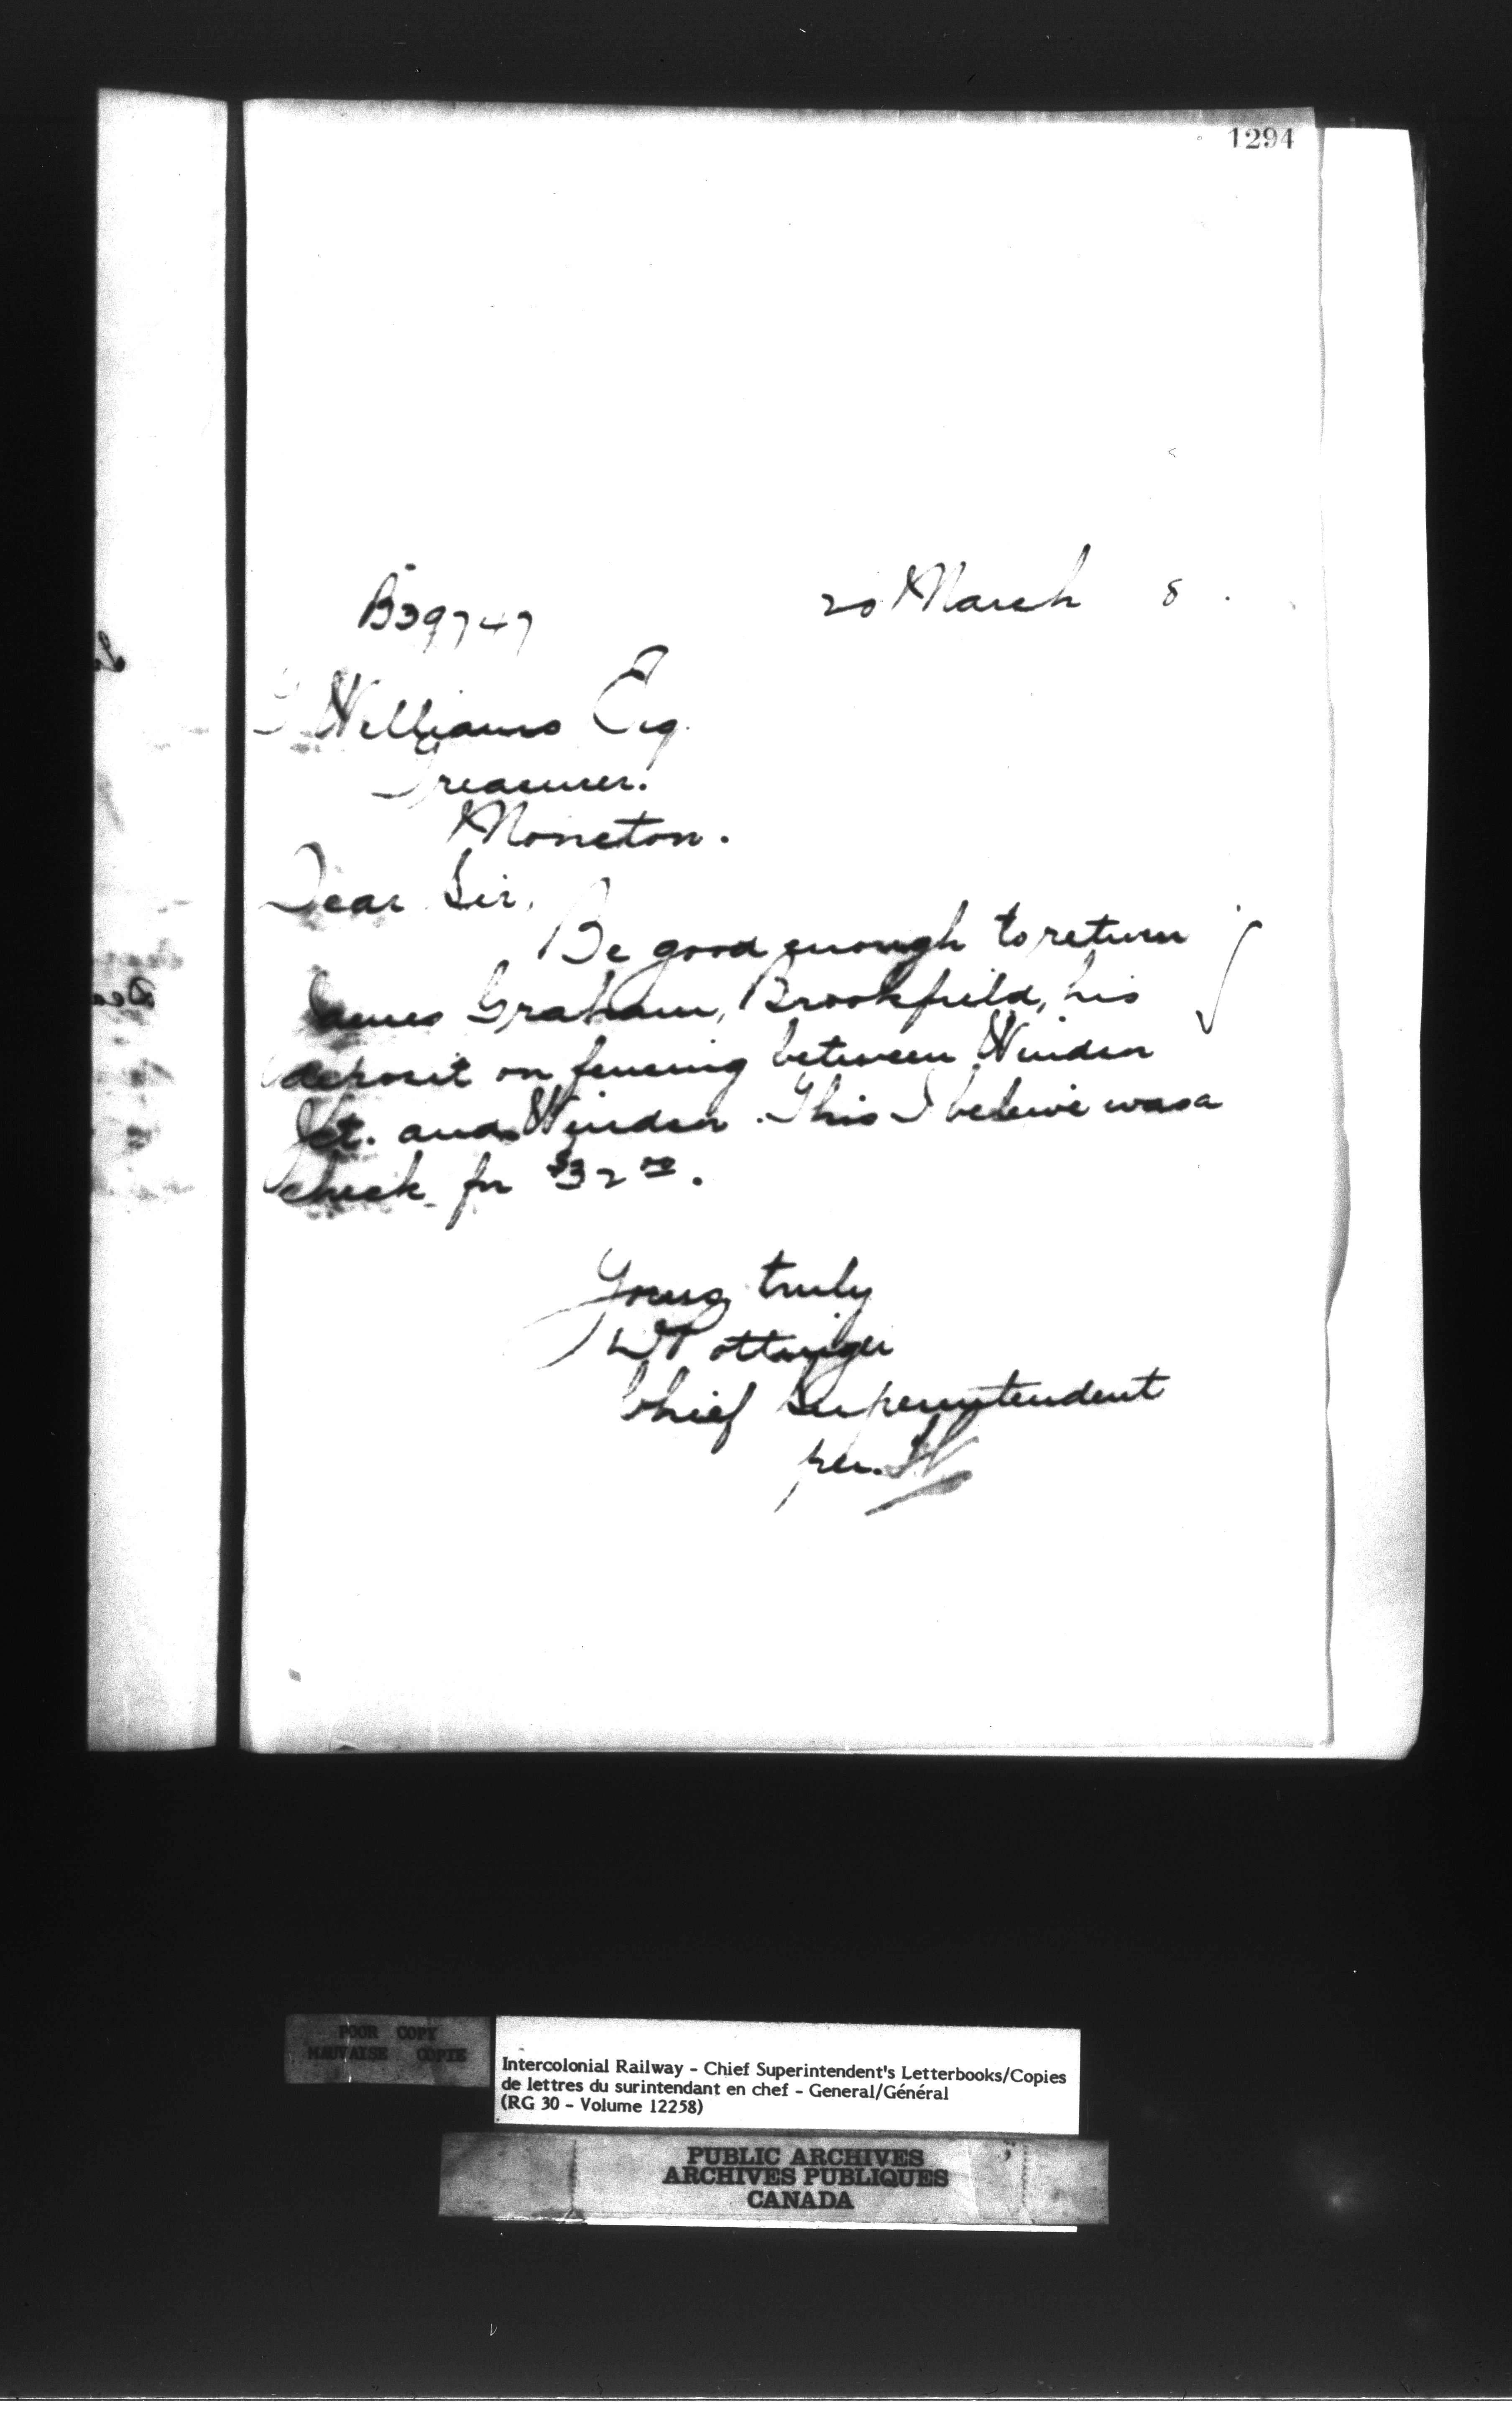 1294
20 March 8
B39747
T Williams Esq.
Treasurer.
Moncton.
Dear Sir,
Be good enough to return
James Graham, Brookfield, his
deposit on fencing between Windsor
Jct. and Windsor. This I believe was a
check for $32.00.
Yours truly
D Pottinger
Chief Superintendent
per.
POOR COPY
MAUVAISE COPIE
Intercolonial Railway - Chief Superintendent's Letterbooks/Copies
de lettres du surintendant en chef - General/Général
(RG 30 - Volume 12258)
PUBLIC ARCHIVES
ARCHIVES PUBLIQUES
CANADA